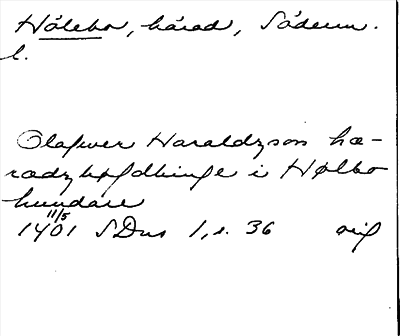 Hålebo, härad, Söderm.
l.
Olafwer Haraldzson hæ-
radzhøfdhinge i Hølbo
hundare
11/5
1401 SDns 1, s. 36 orig